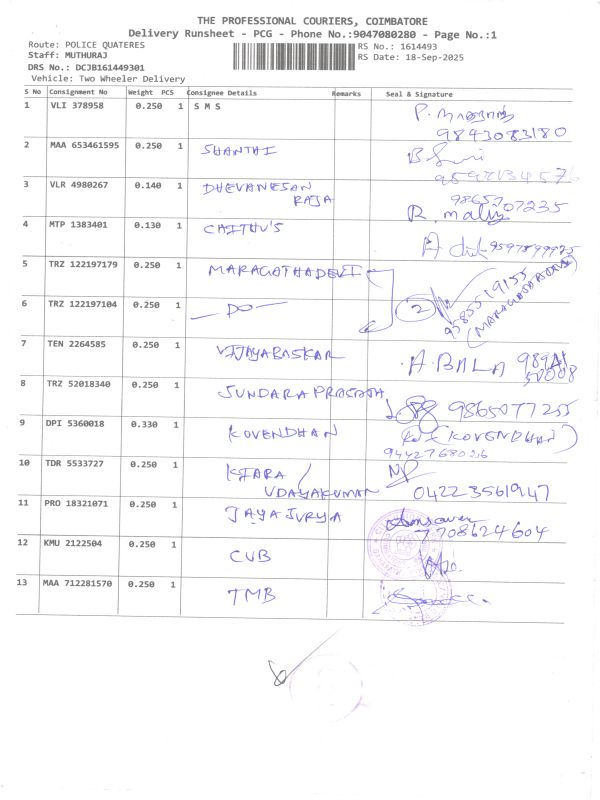 THE PROFESSIONAL COURIERS, COIMBATORE
Delivery Runsheet - PCG - Phone No.:9047080280 - Page No.:1
Route: POLICE QUATERES RS No.: 1614493
Staff: MUTHURAJ RS Date: 18-Sep-2025
DRS No.: DCJB161449301
Vehicle: Two Wheeler Delivery
S No Consignment No Weight PCS Consignee Details Remarks Seal & Signature
1 VLI 378958 0.250 1 S M S
9843083180
2 MAA 653461595 0.250 1 SHANTHI
3 VLR 4980267 0.140 1 DHEVANESAN
RAJA
9865707235
R. maliz
4 MTP 1383401 0.130 1 CAITHU'S
5 TRZ 122197179 0.250 1 MARAGATHADEVI
6 TRZ 122197104 0.250 1 —DO— 2
9585519155
7 TEN 2264585 0.250 1 VIJAYABASKAR A. BALA
8 TRZ 52018340 0.250 1 SUNDARA PRASATH 9865077255
9 DPI 5360018 0.330 1 KOVENDHAN (KOVENDHAN)
10 TDR 5533727 0.250 1 KTARA /
UDAYAKUMAR 0422 3561947
11 PRO 18321071 0.250 1 JAYA SURYA
7708624604
12 KMU 2122504 0.250 1 CUB
13 MAA 712281570 0.250 1 TMB